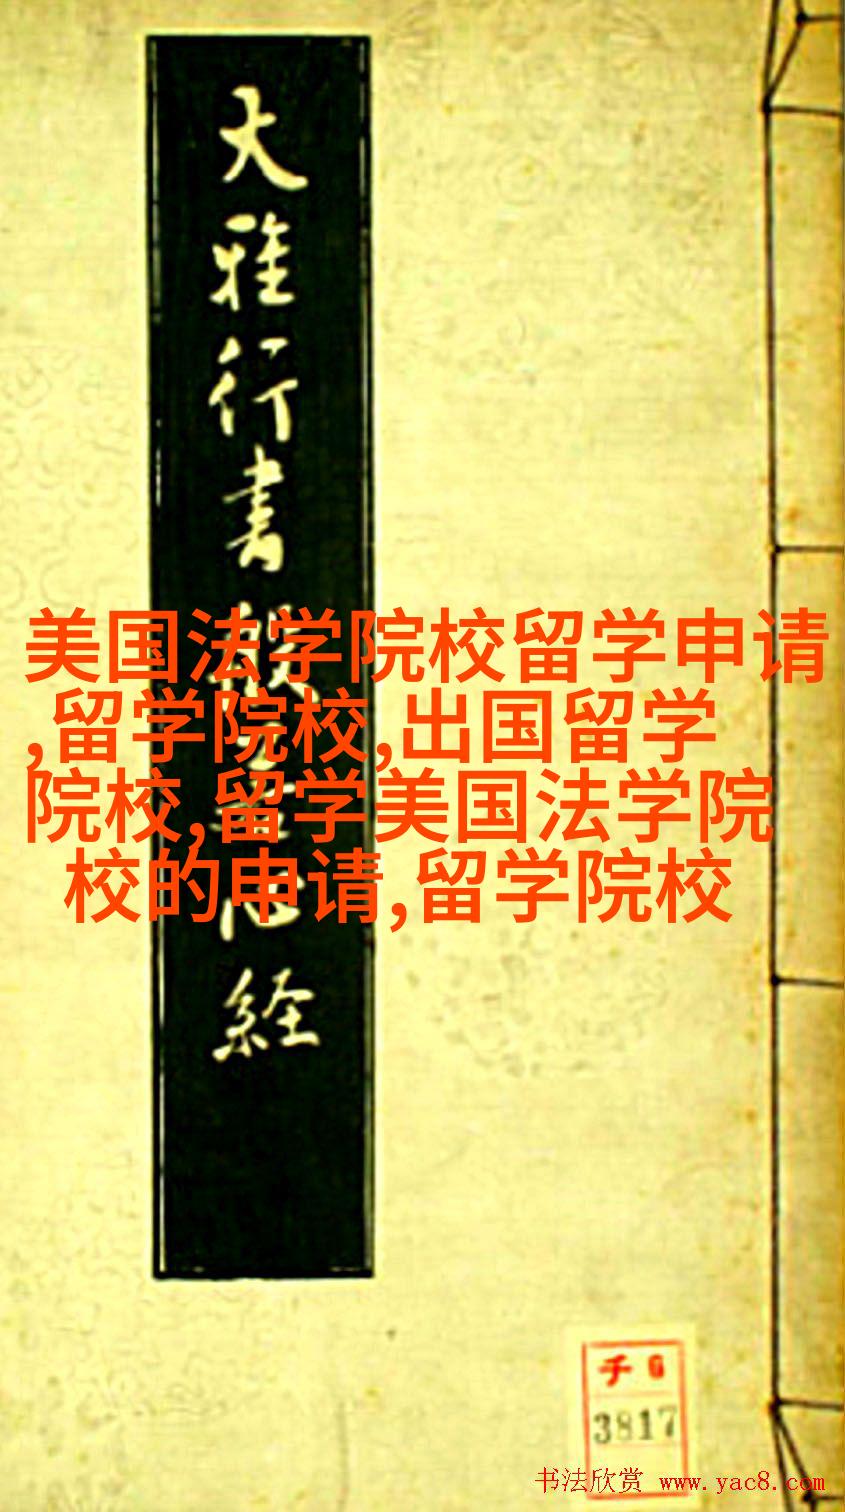 大雅行書般若心経
美国法学院校留学申请
,留学院校,出国留学
院校,留学美国法学院
校的申请,留学院校
チ 6
3817
书法欣赏 www.yac8.com